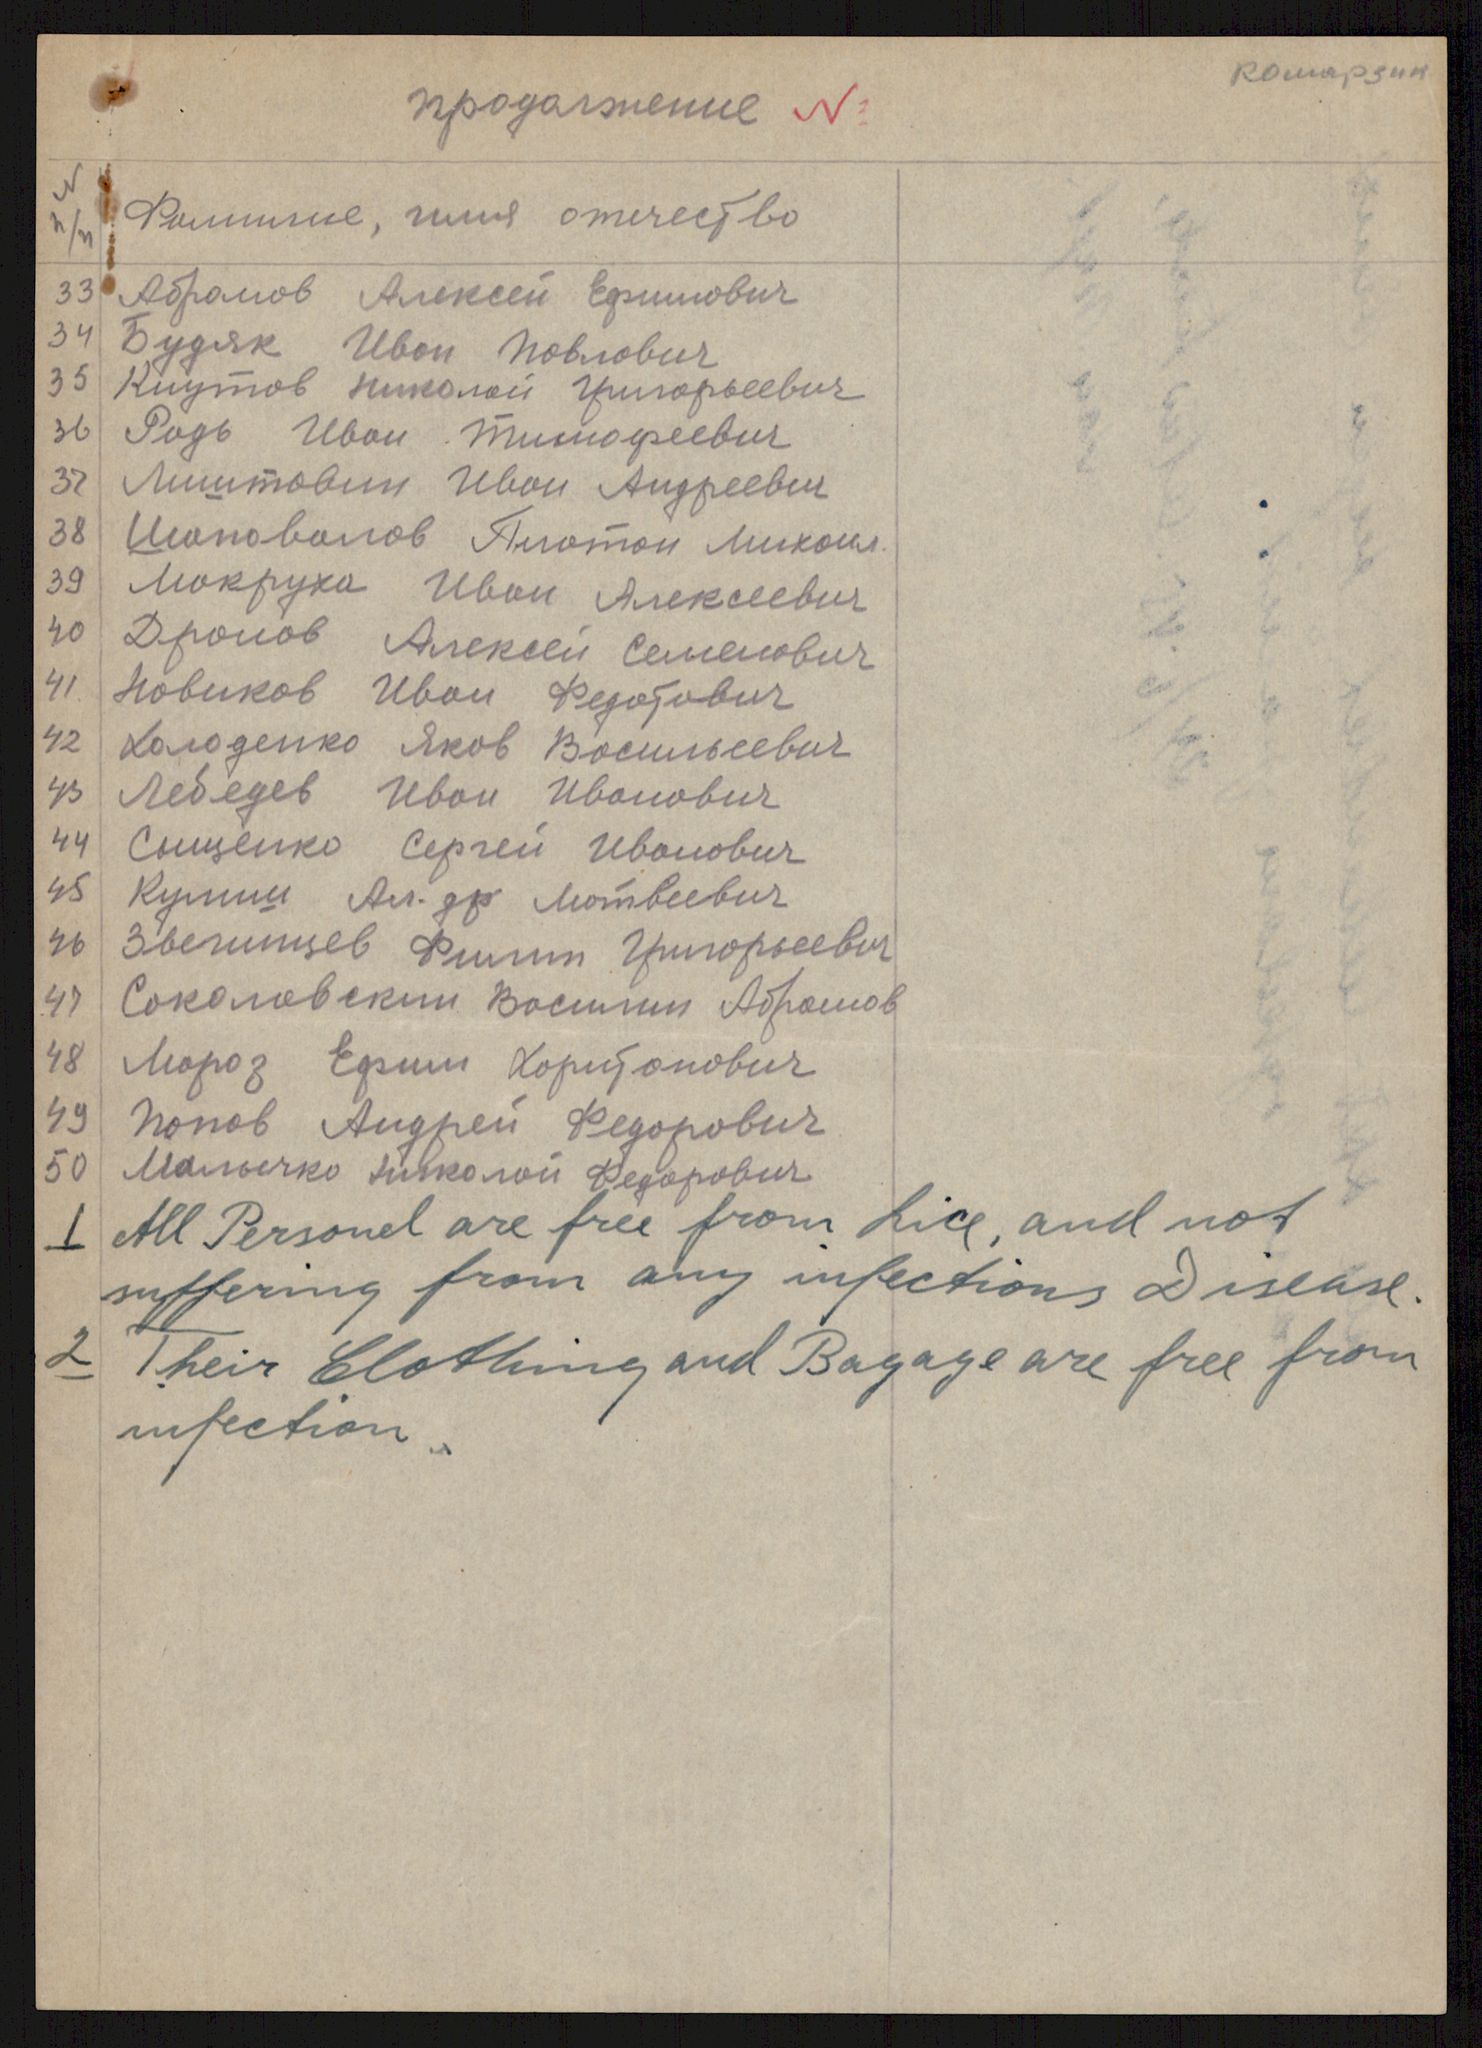 продолжение №
N п/п Фамилие, имя отчество
33 Абрамов Алексей Ефимович
34 Будяк Иван Павлович
35 Кнутов Николай Григорьевич
36 Родь Иван Тимофеевич
37 Лиштовин Иван Андреевич
38 Шаповалов Платон Михаил.
39 Мокруха Иван Алексеевич
40 Дронов Алексей Семенович
41 Новиков Иван Федотович
42 Холоденко Яков Васильевич
43 Лебедев Иван Иванович
44 Сыщенко Сергей Иванович
45 Кулиш Ал-др Матвеевич
46 Звегинцев Филип Григорьевич
47 Соколовский Василий Абрамов
48 Мороз Ефим Харитонович
49 Попов Андрей Федорович
50 Малычко Николай Федорович
1 All Personel are free from Lice, and not
suffering from any infections Disease.
2 Their Clothing and Bagage are free from
infection.